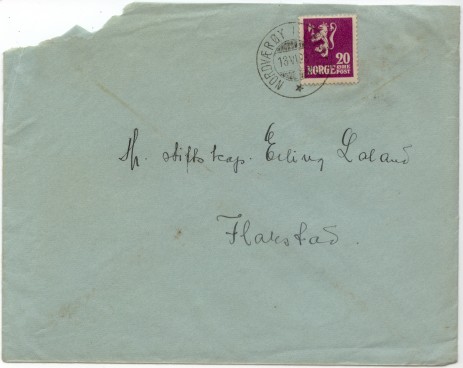 NORDVÆRBY
18 VI
20
NORGE ØRE POST
Hr. stiftskap. Erling Laland
Flakstad.